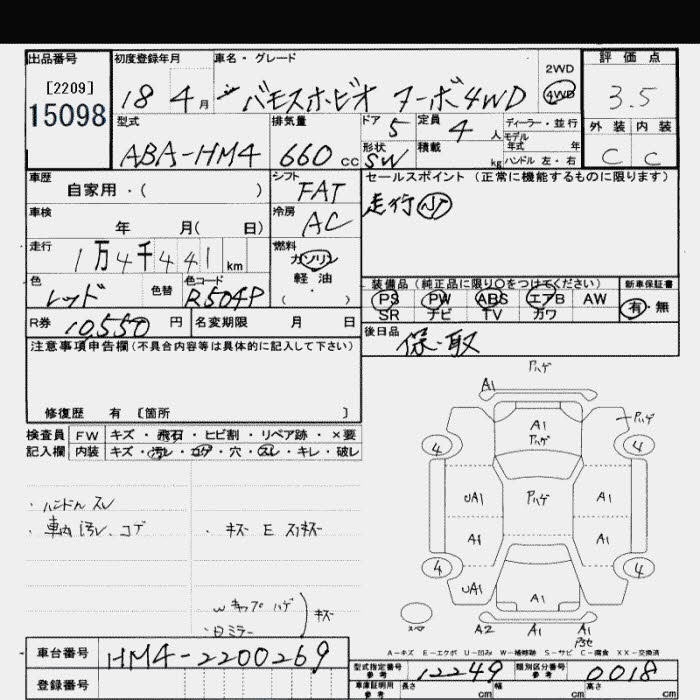 出品番号
[2209]
15098
初度登録年月
18 4月
車名・グレード
バモスホビオ ターボ4WD
2WD
4WD
評価点
3.5
外装 内装
C C
型式
ABA-HM4
排気量
660 cc
ドア 5
形状 SW
定員 4 人
積載 kg
ディーラー・並行
モデル年式 年
ハンドル 左・右
車歴
自家用・( )
シフト
FAT
冷房
AC
車検
年 月( 日)
走行
1万4千441 km
燃料
ガソリン
軽油
( ・ )
色
レッド
色替
色コード
R504P
R券 10,550 円
名変期限 月 日
セールスポイント (正常に機能するものに限ります)
走行小
装備品 (純正品に限り○をつけてください)
PS PW ABS エアB AW
SR ナビ TV カワ
新車保証書
有・無
後日品
保・取
注意事項申告欄(不具合内容等は具体的に記入して下さい)
修復歴 有 〔箇所 〕
検査員記入欄
FW キズ・飛石・ヒビ割・リペア跡・×要
内装 キズ・汚レ・コゲ・穴・スレ・キレ・破レ
・ハンドル スレ
・車内 汚レ、コゲ
・キズ E スリキズ
W キャップ ハゲ
・日ミラー
キズ
Pハゲ
A1
A1
Pハゲ
Pハゲ
4 4
UA1 Pハゲ A1
A1 A1
4 4
UA1
A1
スペア
A2 A1 A1
A-キズ E-エクボ U-凹み W-補修跡 S-サビ C-腐食 XX-交換済
車台番号
HM4-2200269
登録番号
型式指定番号 参考
12249
類別区分番号 参考
0018
車庫証明用 参考
長さ cm 幅 cm 高さ cm